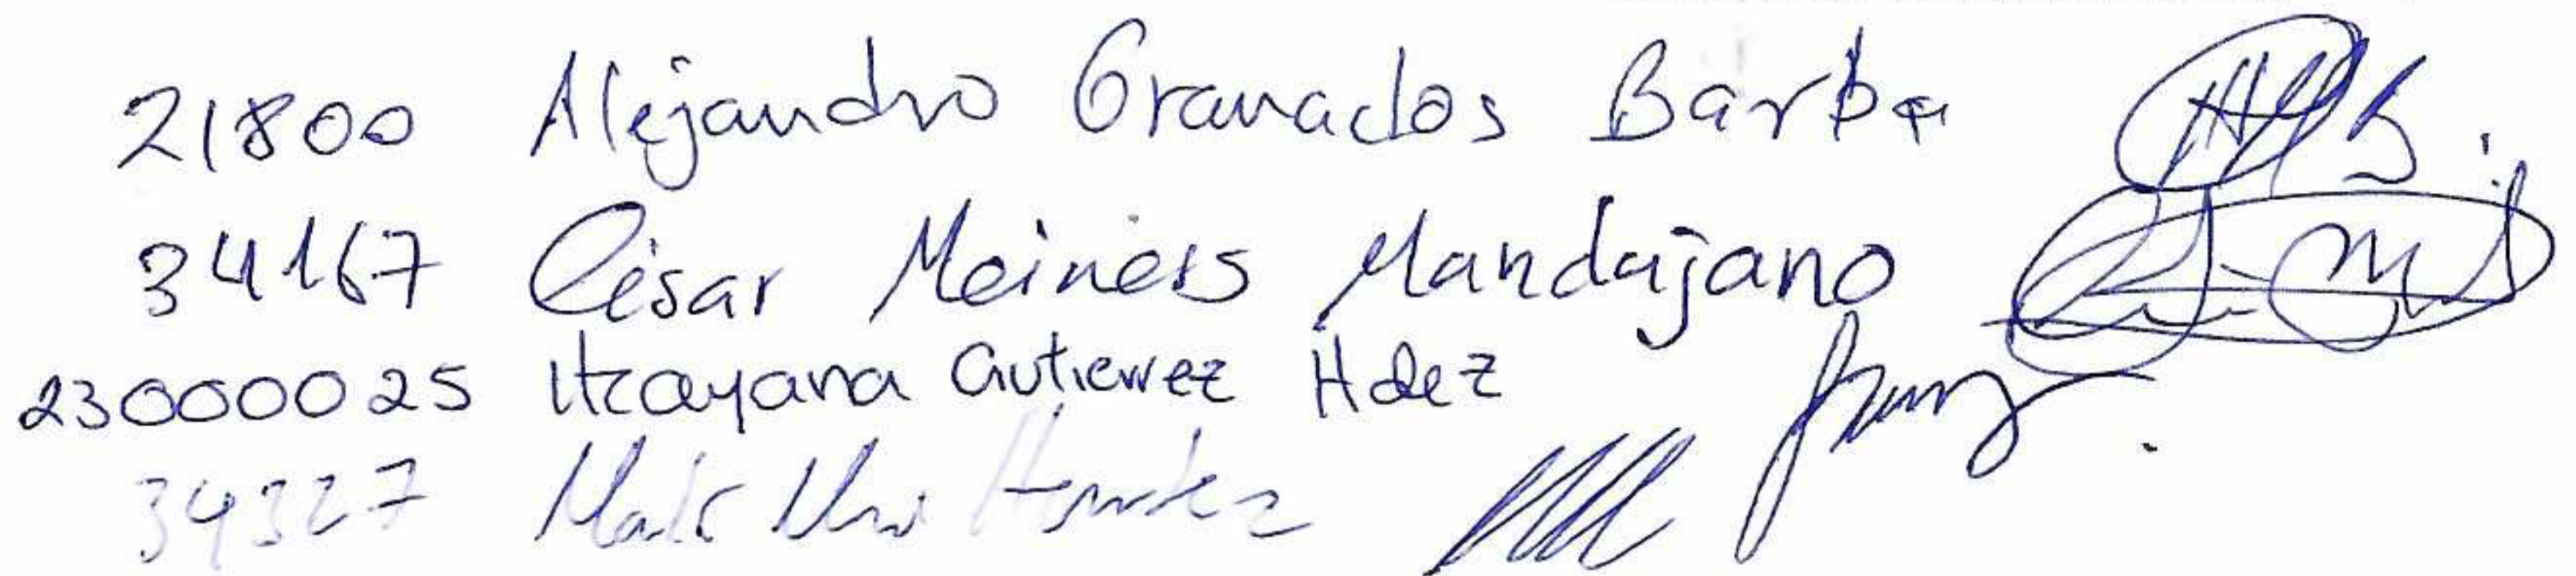 21800 Alejandro Granados Barba
34167 César Meiners Mandujano
23000025 Itzayana Gutierrez Hdez
34327